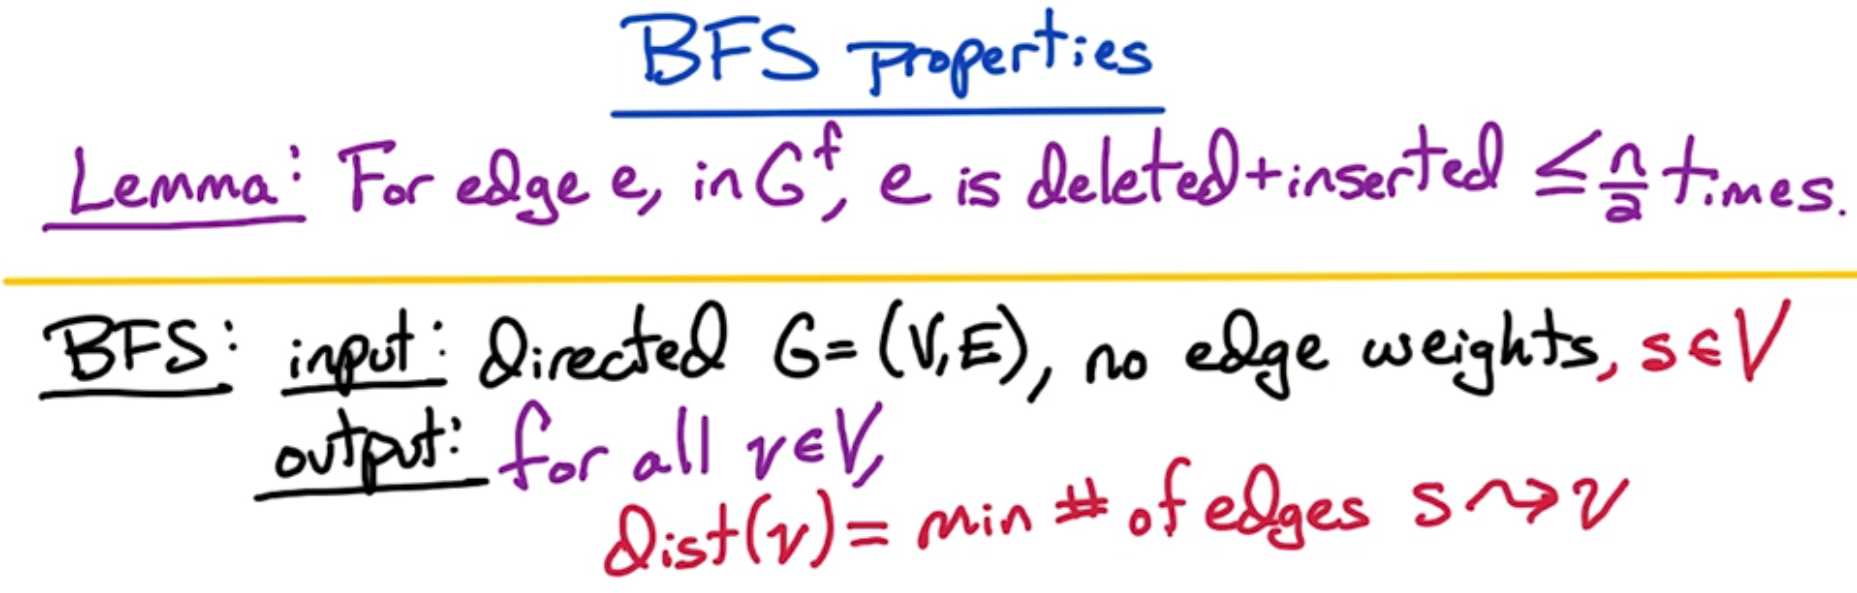 BFS properties
Lemma: For edge e, in G^f, e is deleted+inserted ≤ n/2 times.
BFS: input: directed G=(V,E), no edge weights, s∈V
output: for all v∈V,
dist(v) = min # of edges s⇝v